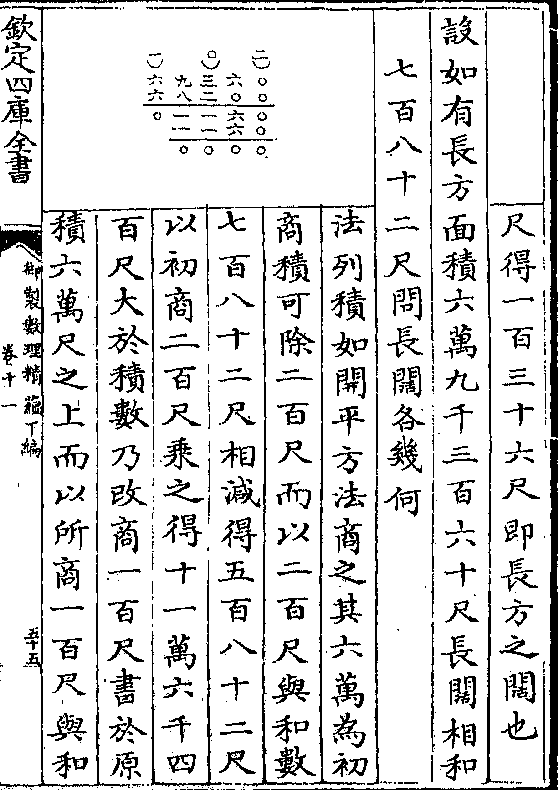 尺得一百三十六尺即長方之闊也
設如有長方面積六萬九千三百六十尺長闊相和
七百八十二尺問長闊各幾何
(一) (○) (二)
六九三六○
六八二○○
○一一六○
一一六○
○○○○
法列積如開平方法商之其六萬為初
商積可除二百尺而以二百尺與和數
七百八十二尺相減得五百八十二尺
以初商二百尺乘之得十一萬六千四
百尺大於積數乃改商一百尺書於原
積六萬尺之上而以所商一百尺與和
欽定四庫全書
御製數理精蘊下編
卷十一
五十五